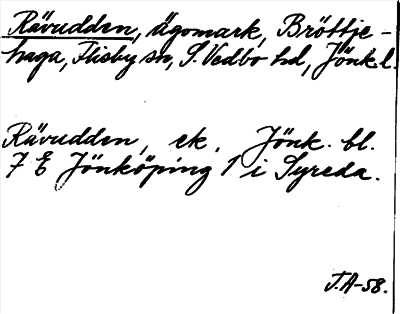 Rävudden, ägomark, Bröttje-
haga, Flisby sn, S. Vedbo hd, Jönk. l.
Rävudden, ek. Jönk. bl.
7 E Jönköping 1 i Syreda.
J.A-58.